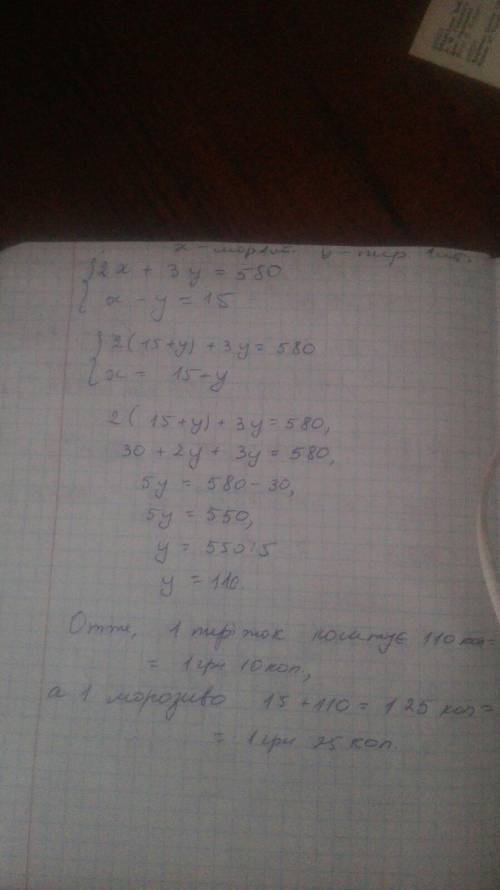 x - мороз. y - пир. 1 шт.
{ 2x + 3y = 580
x - y = 15
{ 2(15+y) + 3y = 580
x = 15+y
2(15+y) + 3y = 580,
30 + 2y + 3y = 580,
5y = 580 - 30,
5y = 550,
y = 550:5
y = 110.
Отже, 1 пиріжок коштує 110 коп =
= 1 грн 10 коп,
а 1 морозиво 15 + 110 = 125 коп =
= 1 грн 25 коп